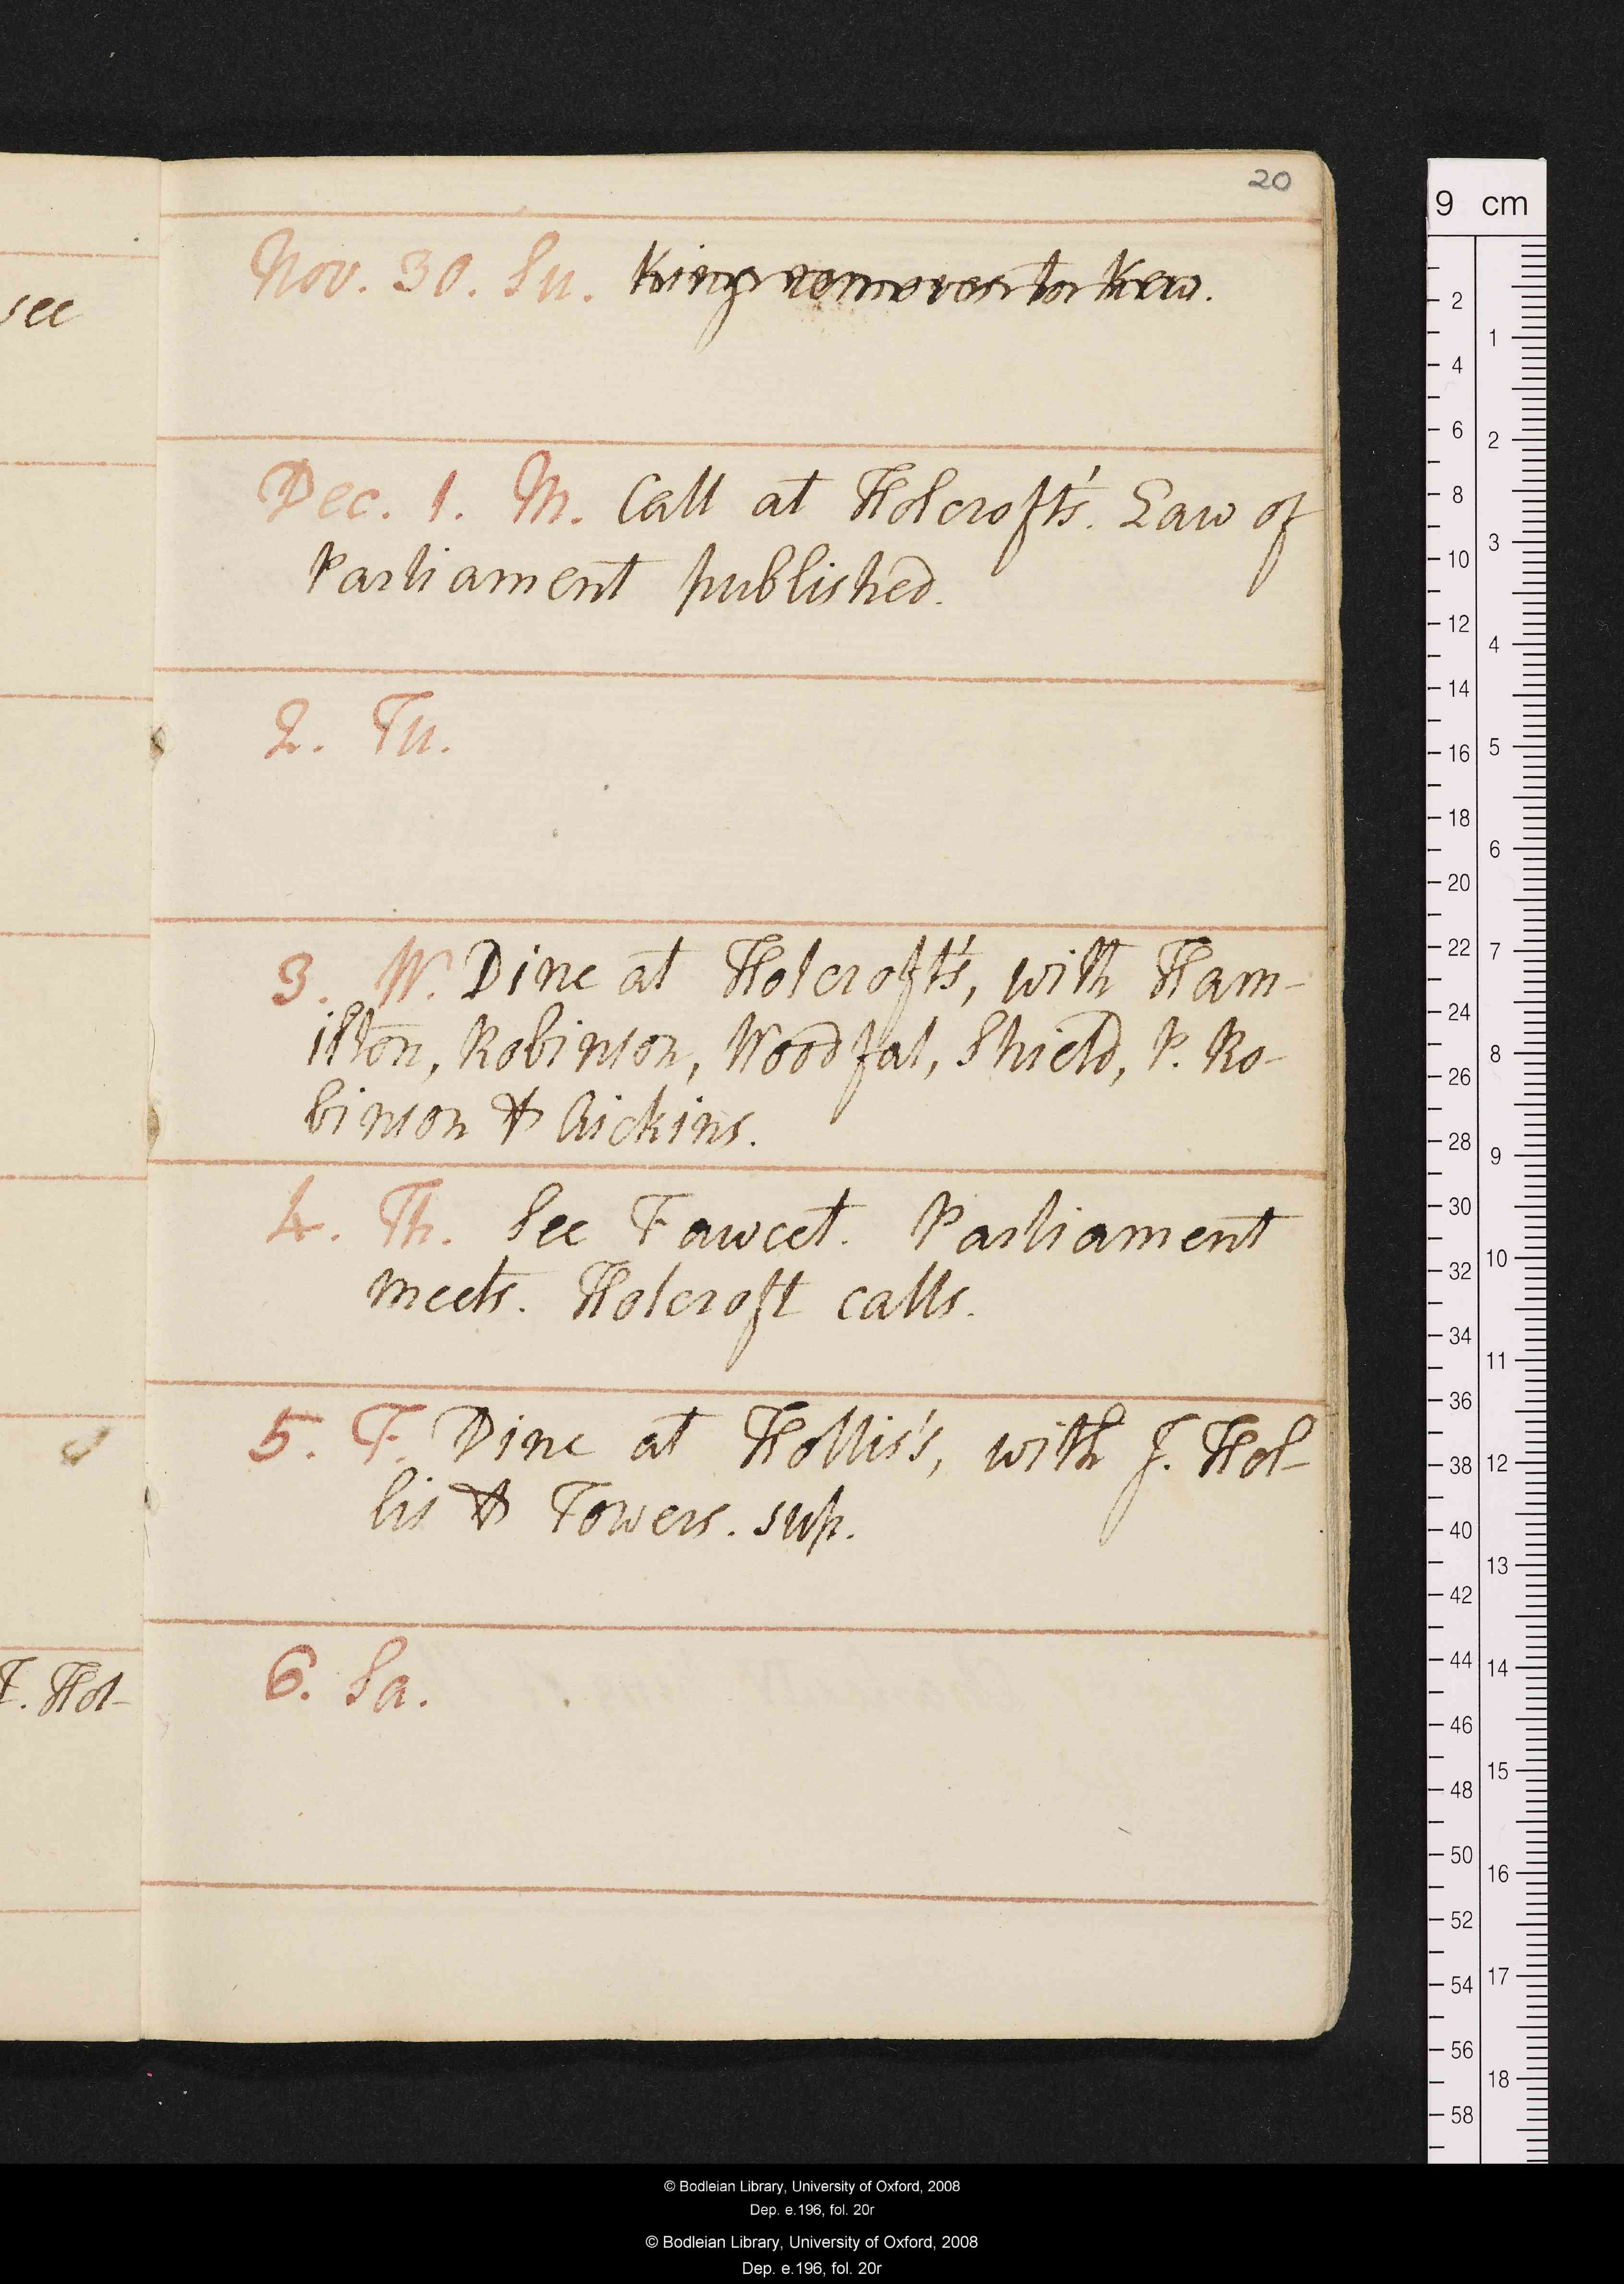 20
see
Nov. 30. Su. King removes to Kew.
Dec. 1. M. Call at Holcroft's. Law of
Parliament published.
2. Tu.
3. W. Dine at Holcroft's, with Ham-
ilton, Robinson, Woodfal, Shield, P. Ro-
binson & Aickins.
4. Th. See Fawcet. Parliament
meets. Holcroft calls.
5. F. Dine at Hollis's, with J. Hol-
lis & Towers. sup.
6. Sa.
T. Hol-
9 cm
2 4 6 8 10 12 14 16 18 20 22 24 26 28 30 32 34 36 38 40 42 44 46 48 50 52 54 56 58
1 2 3 4 5 6 7 8 9 10 11 12 13 14 15 16 17 18
© Bodleian Library, University of Oxford, 2008
Dep. e.196, fol. 20r
© Bodleian Library, University of Oxford, 2008
Dep. e.196, fol. 20r